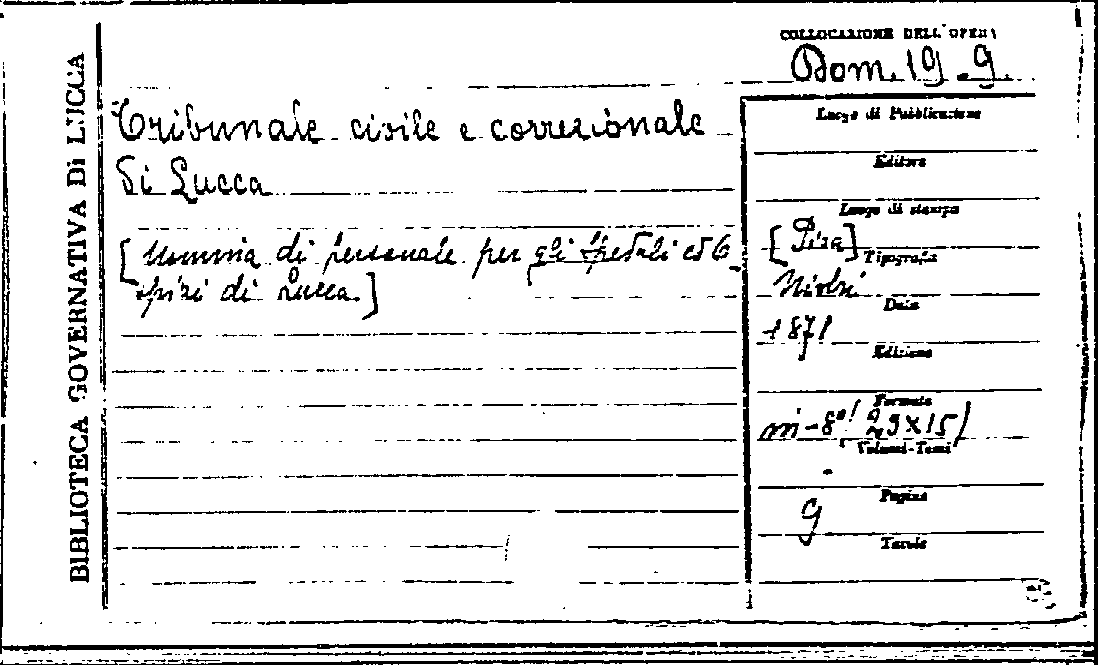 BIBLIOTECA GOVERNATIVA DI LUCCA
COLLOCAZIONE DELL'OPERA
Dom. 19.9.
Tribunale civile e correzionale
di Lucca
[Nomina di personale per gli Spedali ed O-
spizi di Lucca.]
Luogo di Pubblicazione
Editore
Luogo di stampa
[Pisa]
Tipografia
Nistri
Data
1871
Edizione
Formato
in-8°( 23x15)
Volumi-Tomi
Pagine
9
Tavole